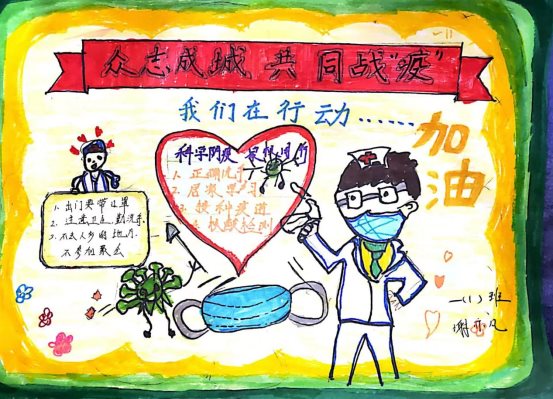 众志成城 共同战"疫"
我们在行动……
加油
科学防疫
1. 正确洗手
2. 居家学习
3. 接种疫苗
4. 核酸检测
1. 出门要带口罩
2. 注意卫生 勤洗手
3. 不去人多的地方
不参加聚会
一(1)班